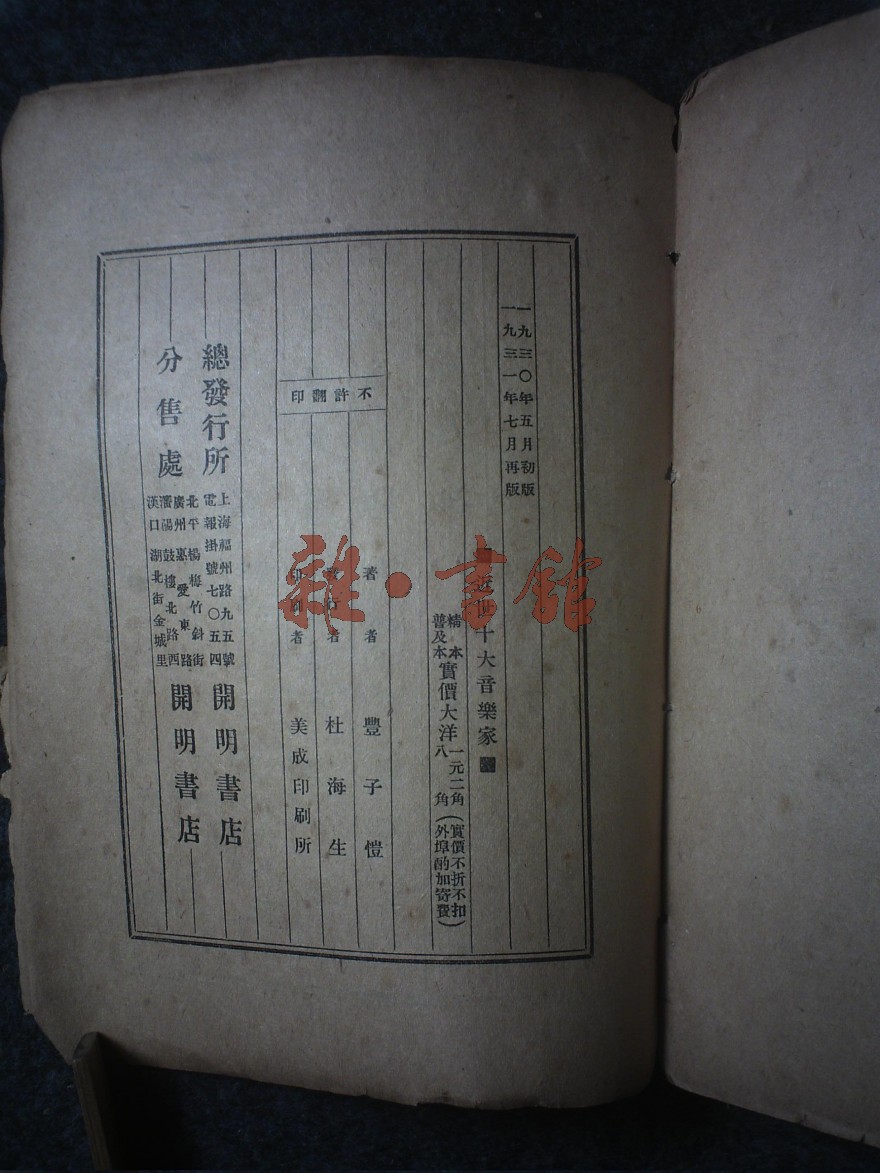 一九三〇年五月初版
一九三一年七月再版
近世十大音樂家
精本
普及本
實價大洋
一元二角
八角
(實價不折不扣
外埠酌加寄費)
不許翻印
著者 豐子愷
發行者 杜海生
印刷者 美成印刷所
總發行所 上海福州路九五號
電報掛號七〇五四 開明書店
分售處 北平楊梅竹斜街
廣州惠愛東路
瀋陽鼓樓北路西
漢口湖北街金城里 開明書店
雜·書館